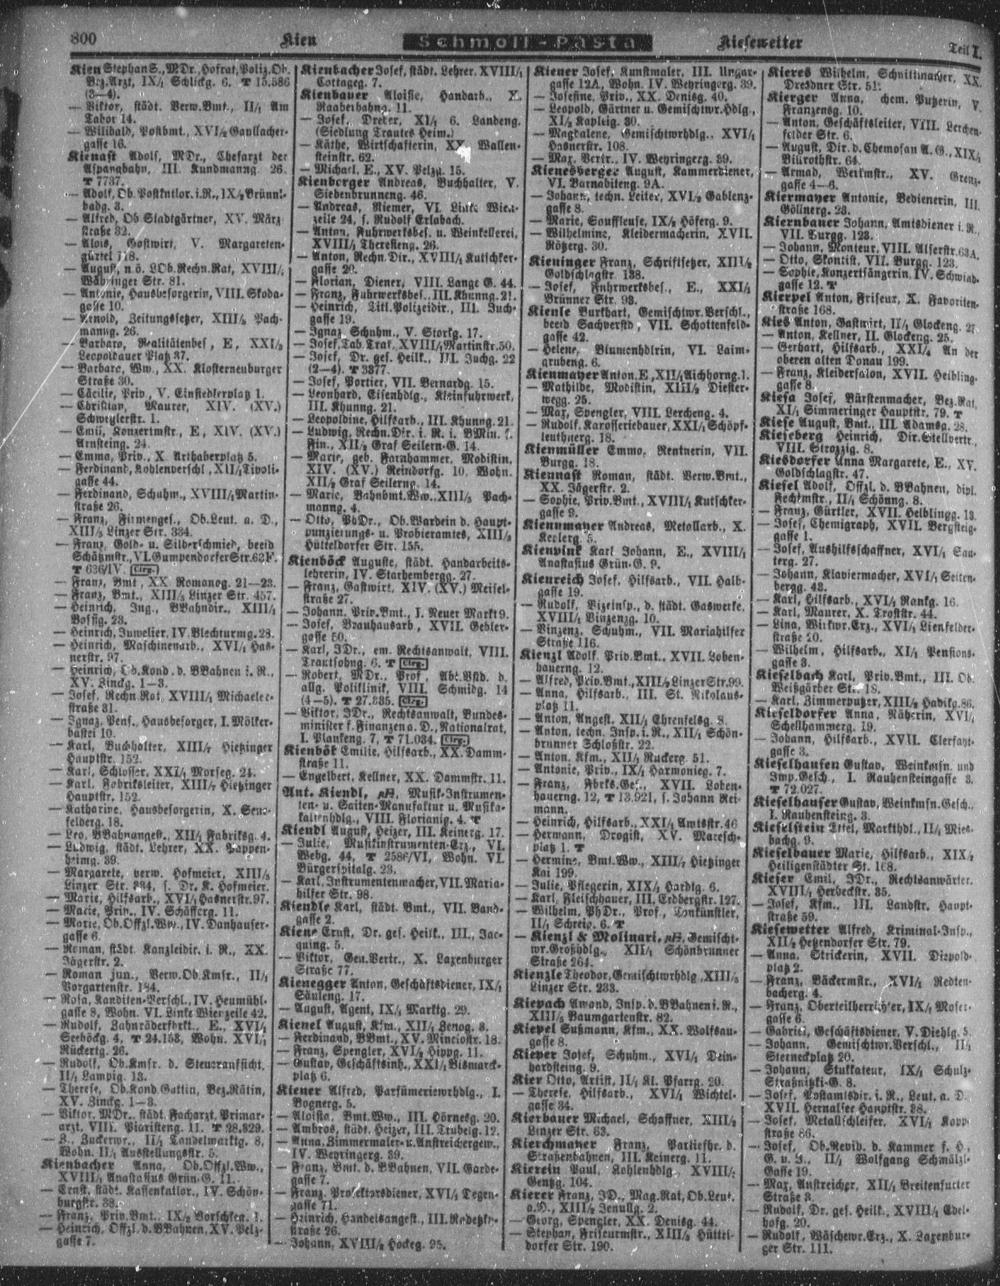 800
Kien
Schmoll-Pasta
Kiesewetter
Teil I.
Kien Stephan S., MDr., Hofrat, Poliz. Ob.
Bez. Arzt, IX/1 Schlickg. 6. T 15.586
(3—4).
— Viktor, städt. Verw. Bmt., II/1 Am
Tabor 14.
— Willibald, Postbmt., XVI/2 Gaullacher-
gasse 16.
Kienast Adolf, MDr., Chefarzt der
Aspangbahn, III. Kundmanng. 26.
T 7737.
— Adolf, Ob. Postkntlor. i. R., IX/2 Brünnl-
badg. 3.
— Alfred, Ob Stadtgärtner, XV. März-
straße 32.
— Alois, Gastwirt, V. Margareten-
gürtel 118.
— August, n.ö. LOb. Rechn. Rat, XVIII/1
Währinger Str. 81.
— Antonie, Hausbesorgerin, VIII. Skoda-
gasse 10.
— Arnold, Zeitungssetzer, XIII/5 Pach-
manng. 26.
— Barbara, Realitätenbes., E, XXI/2
Leopoldauer Platz 37.
— Barbara, Ww., XX. Klosterneuburger
Straße 30.
— Cäcilie, Priv., V. Einsiedlerplatz 1.
— Christian, Maurer, XIV. (XV.)
Schweglerstr. 1.
— Emil, Konzertmstr., E, XIV. (XV.)
Arnsteing. 24.
— Emma, Priv., X. Arthaberplatz 5.
— Ferdinand, Kohlenverschl., XII/1 Tivoli-
gasse 44.
— Ferdinand, Schuhm., XVIII/1 Martin-
straße 26.
— Franz, Firmenges., Ob. Leut. a. D.,
XIII/5 Linzer Str. 334.
— Franz, Gold- u. Silberschmied, beeid
Schätzmstr., VI. Gumpendorfer Str. 62F.
T 636/IV.
— Franz, Bmt., XX. Romanog. 21—23.
— Franz, Bmt., XIII/5 Linzer Str. 457.
— Heinrich, Ing., BBahndir., XIII/1
Vossig. 23.
— Heinrich, Juwelier, IV. Blechturmg. 28.
— Heinrich, Maschinenarb., XVI/1 Has-
nerstr. 97.
— Heinrich, Ob. Kond. d. BBahnen i. R.,
XV. Zinckg. 1—3.
— Josef, Rechn. Rat, XVIII/1 Michaeler-
straße 31.
— Ignaz, Pens., Hausbesorger, I. Mölker-
bastei 10.
— Karl, Buchhalter, XIII/7 Hietzinger
Hauptstr. 152.
— Karl, Schlosser, XXI/1 Morseg. 24.
— Karl, Fabriksleiter, XIII/7 Hietzinger
Hauptstr. 152.
— Katharine, Hausbesorgerin, X. Senefelderg. 18.
— Leo, BBahnangest., XII/1 Fabriksg. 4.
— Ludwig, städt. Lehrer, XX. Pappen-
heimg. 39.
— Margarete, verw. Hofmeier, XIII/5
Linzer Str. 334, s. Dr. K. Hofmeier.
— Marie, Hilfsarb., XVI/1 Hasnerstr. 97.
— Marie, Priv., IV. Schäfferg. 11.
— Marie, Ob. Offzl. Ww., IV. Danhauser-
gasse 6.
— Roman, städt. Kanzleidir. i. R., XX.
Jägerstr. 2.
— Roman jun., Verw. Ob. Kmsr., II/1
Vorgartenstr. 184.
— Rosa, Kanditen-Verschl., IV. Heumühl-
gasse 8, Wohn. VI. Linke Wienzeile 42.
— Rudolf, Zahnräderfbrkt., E., XVI/1
Seeböckg. 4, T 24.158, Wohn. XVI/1
Rückertg. 26.
— Rudolf, Ob. Kmsr. d. Steueraufsicht,
II/1 Lampig. 13.
— Therese, Ob. Kond. Gattin, Bez. Rätin,
XV. Zinckg. 1—3.
— Viktor, MDr., städt. Facharzt, Primar-
arzt, VIII. Piaristeng. 11. T 28.829.
Zuckerwr., II/1 Tandelmarktg. 8,
Wohn. II/1 Ausstellungsstr. 5.
Kienbacher Anna, Ob. Offzl. Ww.,
XVIII/1 Anastasius Grün-G. 11.
— Ernst, städt. Kassenkntlor., IV. Schön-
burgstr. 38.
— Franz, Priv. Bmt., IX/2 Borschkeg. 1.
— Heinrich, Offzl. d. BBahnen, XV. Pelz-
gasse 7.
Kienbacher Josef, städt. Lehrer, XVIII/1
Cottageg. 7.
Kienbauer Aloisie, Handarb., X.
Raaberbahng. 11.
— Josef, Dreher, XI/1 6. Landeng.
(Siedlung Trautes Heim.)
— Käthe, Wirtschafterin, XX. Wallen-
steinstr. 62.
— Michael, E., XV. Pelzg. 15.
Kienberger Andreas, Buchhalter, V.
Siebenbrunneng. 46.
— Andreas, Riemer, VI. Linke Wien-
zeile 24, s. Rudolf Erlabach.
— Anton, Fuhrwerksbes. u. Weinkellerei,
XVIII/1 Theresieng. 26.
— Anton, Rechn. Dir., XVIII/1 Kutschker-
gasse 20.
— Florian, Diener, VIII. Lange G. 44.
— Franz, Fuhrwerksbes., III. Khunng. 21.
— Heinrich, Titl. Polizeidir., III. Juch-
gasse 19.
— Ignaz, Schuhm., V. Storkg. 17.
— Josef, Tab. Traf., XVIII/1 Martinstr. 50.
— Josef, Dr. ges. Heilk., III. Juchg. 22
(2—4). T 3877.
— Josef, Portier, VII. Bernardg. 15.
— Leonhard, Eisenhdlg., Kleinfuhrwerk,
III. Khunng. 21.
— Leopoldine, Hilfsarb., III. Khunng. 21.
— Ludwig, Rechn. Dir. i. R. i. BMin. f.
Fin., XII/2 Graf Seilern-G. 14.
— Marie, geb. Farahammer, Modistin,
XIV. (XV.) Reindorfg. 10. Wohn.
XII/2 Graf Seilerng. 14.
— Marie, Bahnbmt. Ww., XIII/5 Pach-
manng. 4.
— Otto, PhDr., Ob. Wardein d. Haupt-
punzierungs- u. Probieramtes, XIII/5
Hütteldorfer Str. 155.
Kienböck Auguste, städt. Handarbeits-
lehrerin, IV. Starhembergg. 27.
— Franz, Gastwirt, XIV. (XV.) Meisel-
straße 27.
— Johann, Priv. Bmt., I. Neuer Markt 9.
— Josef, Brauhausarb., XVII. Gebler-
gasse 50.
— Karl, JDr., em. Rechtsanwalt, VIII.
Trautsohng. 6. T
— Robert, MDr., Prof., Abt. Vstd. d.
allg. Poliklinik, VIII. Schmidg. 14
(4—5). T 27.835.
— Viktor, JDr., Rechtsanwalt, Bundes-
minister f. Finanzen a. D., Nationalrat,
I. Plankeng. 7, T 71.034.
Kienbök Emilie, Hilfsarb., XX. Damm-
straße 11.
— Engelbert, Kellner, XX. Dammstr. 11.
Ant. Kiendl, Musik-Instrumen-
ten- u. Saiten-Manufaktur u. Musika-
lienhdlg., VIII. Florianig. 4. T
Kiendl August, Heizer, III. Keinerg. 17.
— Julie, Musikinstrumenten-Erz., VI.
Webg. 44, T 2586/VI, Wohn. VI.
Bürgerspitalg. 23.
— Karl, Instrumentenmacher, VII. Maria-
hilfer Str. 98.
Kiendle Karl, städt. Bmt., VII. Band-
gasse 2.
Kiene Ernst, Dr. ges. Heilk., III., Jac-
quing. 5.
— Viktor, Gen. Vertr., X. Laxenburger
Straße 77.
Kienegger Anton, Geschäftsdiener, IX/1
Säuleng. 17.
— August, Agent, IX/1 Marktg. 29.
Kienel August, Kfm., XII/1 Zenog. 8.
— Ferdinand, BBmt., XV. Minciostr. 18.
— Franz, Spengler, XVI/1 Hippg. 11.
— Gustav, Geschäftsinh., XXI/1 Bismarck-
platz 6.
Kiener Alfred, Parfümeriewrhdlg., I.
Wognerg. 5.
— Aloisia, Bmt. Ww., III. Hörneßg. 20.
— Ambros, städt. Heizer, III. Trubelg. 12.
— Anna, Zimmermaler- u. Anstreichergew.,
IV. Weyringerg. 39.
— Franz, Bmt. d. BBahnen, VII. Garde-
gasse 7.
— Franz, Prosektursdiener, XVI/1 Degen-
gasse 71.
— Heinrich, Handelsangest., III. Radetzky-
straße 26.
— Johann, XVIII/2 Hockeg. 95.
Kiener Josef, Kunstmaler, III. Ungar-
gasse 12A, Wohn. IV. Weyringerg. 39.
— Josefine, Priv., XX. Denisg. 40.
— Leopold, Gärtner u. Gemischtwr. Hdlg.,
XI/2 Kapleig. 30.
— Magdalene, Gemischtwrhdlg., XVI/1
Hasnerstr. 108.
— Max, Vertr., IV. Weyringerg. 39.
Kienesberger August, Kammerdiener,
VI. Barnabiteng. 9A.
— Johann, techn. Leiter, XVI/2 Gablenz-
gasse 8.
— Marie, Souffleuse, IX/2 Höferg. 9.
— Wilhelmine, Kleidermacherin, XVII.
Rötzerg. 30.
Kieninger Franz, Schriftsetzer, XIII/4
Goldschlagstr. 138.
— Josef, Fuhrwerksbes., E., XXI/1
Brünner Str. 93.
Kienle Burkhart, Gemischtwr. Verschl.,
beeid Sachverstd., VII. Schottenfeld-
gasse 42.
— Helene, Blumenhdlrin, VI. Laim-
grubeng. 6.
Kienmayer Anton, E., XII/1 Aichhorng. 1.
— Mathilde, Modistin, XIII/5 Diester-
wegg. 25.
— Max, Spengler, VIII. Lercheng. 4.
— Rudolf, Karosseriebauer, XXI/4 Schöpf-
leuthnerg. 18.
Kienmüller Emma, Rentnerin, VII.
Burgg. 18.
Kiennast Roman, städt. Verw. Bmt.,
XX. Jägerstr. 2.
— Sophie, Priv. Bmt., XVIII/1 Kutschker-
gasse 9.
Kiennmayer Andreas, Metallarb., X.
Keplerg. 5.
Kienpink Karl Johann, E., XVIII/1
Anastasius Grün-G. 9.
Kienreich Josef, Hilfsarb., VII. Halb-
gasse 19.
— Rudolf, Vizeinsp., d. städt. Gaswerke,
XVIII/1 Vinzenzg. 10.
— Vinzenz, Schuhm., VII. Mariahilfer
Straße 116.
Kienzl Adolf, Priv. Bmt., XVII. Loben-
hauerng. 12.
— Alfred, Priv. Bmt., XIII/5 Linzer Str. 99.
— Anna, Hilfsarb., III. St. Nikolaus-
platz 11.
— Anton, Angest., XII/1 Ehrenfelsg. 8.
— Anton, techn. Insp. i. R., XII/1 Schön-
brunner Schloßstr. 22.
— Anton, Kfm., XII/1 Ruckerg. 51.
— Antonie, Priv., IX/1 Harmonieg. 7.
— Franz, Fbrks. Ges., XVII. Loben-
hauerng. 12, T 13.921, s. Johann Rei-
mann.
— Heinrich, Hilfsarb., XXI/1 Amtsstr. 46
— Hermann, Drogist, XV. Mareschplatz 1. T
— Hermine, Bmt. Ww., XIII/2 Hietzinger
Kai 199.
— Julie, Pflegerin, XIX/1 Hardtg. 6.
— Karl, Fleischhauer, III. Erdbergstr. 127.
— Wilhelm, PhDr., Prof., Tonkünstler,
II/1 Schreig. 6. T
— Kienzl & Molinari, Gemischt-
wr. Großhdlg., XII/1 Schönbrunner
Straße 264.
Kienzle Theodor, Gemischtwrhdlg., XIII/5
Linzer Str. 233.
Kiepach Amond, Insp. d. BBahnen i. R.,
XIII/5 Baumgartenstr. 82.
Kiepel Sußmann, Kfm., XX. Wolfsau-
gasse 8.
Kieper Josef, Schuhm., XVI/1 Dein-
hardsteing. 9.
Kier Otto, Artist, II/1 Kl. Pfarrg. 20.
— Therese, Hilfsarb., XVI/1 Wichtel-
gasse 34.
Kierbauer Michael, Schaffner, XIII/5
Linzer Str. 63.
Kierchmayer Franz, Partiefhr. d.
Straßenbahnen, III. Keinerg. 11.
Kierein Paul, Kohlenhdlg., XVIII/1
Gentzg. 104.
Kierer Franz, JD., Mag. Rat, Ob. Leut.
a. D., XIII/5 Jenullg. 2.
— Georg, Spengler, XX. Denisg. 44.
— Stephan, Friseurmstr., XIII/5 Hüttel-
dorfer Str. 190.
Kieres Wilhelm, Schnittmacher, XX.
Dresdner Str. 51.
Kierger Anna, chem. Putzerin, V.
Franzensg. 10.
— Anton, Geschäftsleiter, VIII. Lerchen-
felder Str. 6.
— August, Dir. d. Chemosan A. G., XIX/1
Billrothstr. 64.
— Armad, Werkmstr., XV. Grenz-
gasse 4—6.
Kiermayer Antonie, Bedienerin, III.
Göllnerg. 23.
Kiernbauer Johann, Amtsdiener i. R.,
VII. Burgg. 123.
— Johann, Monteur, VIII. Alserstr. 63A.
— Otto, Skontist, VII. Burgg. 123.
— Sophie, Konzertsängerin, IV. Schwind-
gasse 12. T
Kierpel Anton, Friseur, X. Favoriten-
straße 168.
Kies Anton, Gastwirt, II/1 Glockeng. 27
— Anton, Kellner, II. Glockeng. 25.
— Gerhart, Hilfsarb., XXI/4 An der
oberen alten Donau 199.
— Franz, Kleidersalon, XVII. Heibling-
gasse 8.
Kiesa Josef, Bürstenmacher, Bez. Rat,
XI/1 Simmeringer Hauptstr. 79. T
Kiese August, Bmt., III. Adamsg. 28.
Kieseberg Heinrich, Dir. Stellvertr.,
VIII. Strozzig. 8.
Kiesdorfer Anna Margarete, E., XV.
Goldschlagstr. 47.
Kiesel Adolf, Offzl. d. BBahnen, dipl.
Fechtmstr., II/1 Schönng. 8.
— Franz, Gürtler, XVII. Helblingg. 13.
— Josef, Chemigraph, XVII. Bergsteig-
gasse 1.
— Josef, Aushilfsschaffner, XVI/1 Sau-
terg. 27.
— Johann, Klaviermacher, XVI/1 Seiten-
bergg. 43.
— Karl, Hilfsarb., XVI/1 Rankg. 16.
— Karl, Maurer, X. Troststr. 44.
— Lina, Wirkwr. Erz., XVI/1 Lienfelder-
straße 20.
— Wilhelm, Hilfsarb., XI/1 Pensions-
gasse 3.
Kieselbach Karl, Priv. Bmt., III. Ob.
Weißgärber St. 18.
— Karl, Zimmerputzer, XIII/2 Hadikg. 86.
Kieseldorfer Anna, Näherin, XVI/1
Schellhammerg. 19.
— Johann, Hilfsarb., XVII. Clerfayt-
gasse 3.
Kieselhausen Gustav, Weinkmsn. und
Imp. Gesch., I. Rauhensteingasse 3.
T 72.027.
Kieselhauser Gustav, Weinkmsn. Gesch.,
I. Rauhensteing. 3.
Kieselstein Ettel, Markthdl., II/1 Mies-
bachg. 9.
Kieselbauer Marie, Hilfsarb., XIX/2
Heiligenstädter St. 168.
Kieser Emil, JDr., Rechtsanwärter.
XVIII/1 Herbeckstr. 35.
— Josef, Kfm., III. Landstr. Haupt-
straße 59.
Kiesewetter Alfred, Kriminal-Insp.,
XII/2 Hetzendorfer Str. 79.
— Anna, Strickerin, XVII. Diepold-
platz 2.
— Franz, Bäckermstr., XVI/1 Redten-
bacherg. 4.
— Franz, Oberteilherrichter, IX/4 Moser-
gasse 6.
— Gabriel, Geschäftsdiener, V. Diehlg. 5.
— Johann, Gemischtwr. Verschl., II/1
Sterneckplatz 20.
— Johann, Stukkateur, IX/4 Schulz-
Straßnitzki-G. 8.
— Josef, Postamtsdir. i. R., Leut. a. D.,
XVII. Hernalser Hauptstr. 88.
— Josef, Metallschleifer, XVI/1 Kopp-
straße 86.
— Josef, Ob. Revid. d. Kammer f. H.,
G. u. J., II/1 Wolfgang Schmälzl-
Gasse 19.
— Max, Anstreicher, XII/1 Breitenfurter
Straße 3.
— Rudolf, Dr. ges. Heilk., XVIII/1 Edel-
hofg. 20.
— Rudolf, Wäschewr. Erz., X. Laxenbur-
ger Str. 111.